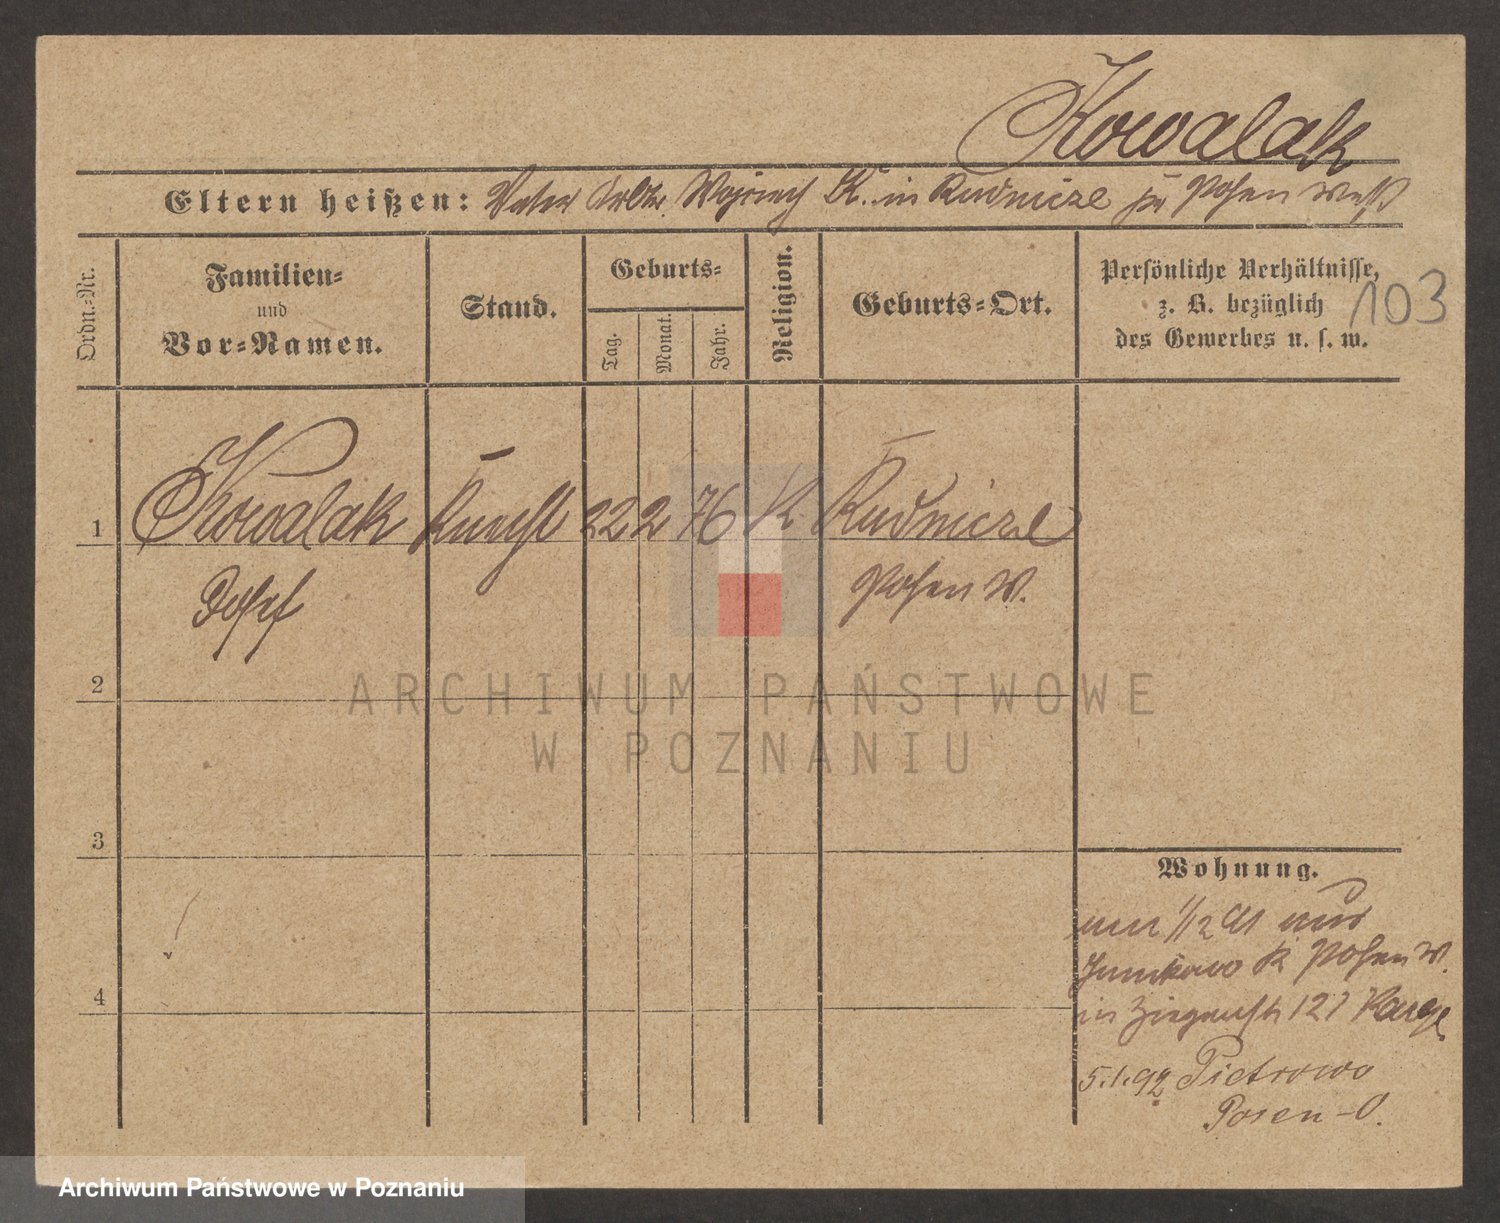 Kowalak
Eltern heißen: Vater Arbtr. Wojciech K. in Rudnicze zu Posen West
Ordn.-Nr.
Familien-
und
Vor-Namen.
Stand.
Geburts-
Tag.
Monat.
Jahr.
Religion.
Geburts-Ort.
Persönliche Verhältnisse,
z. B. bezüglich
des Gewerbes u. s. w.
103
1 Kowalak Knecht 22 2 76 K Rudnicze
Josef Posen W.
2
3
4
Wohnung.
1/2 91 aus
Junikowo K Posen W.
in Ziegenstr 12
5.1.92 Pietrowo
Posen-O.
ARCHIWUM PAŃSTWOWE
W POZNANIU
Archiwum Państwowe w Poznaniu